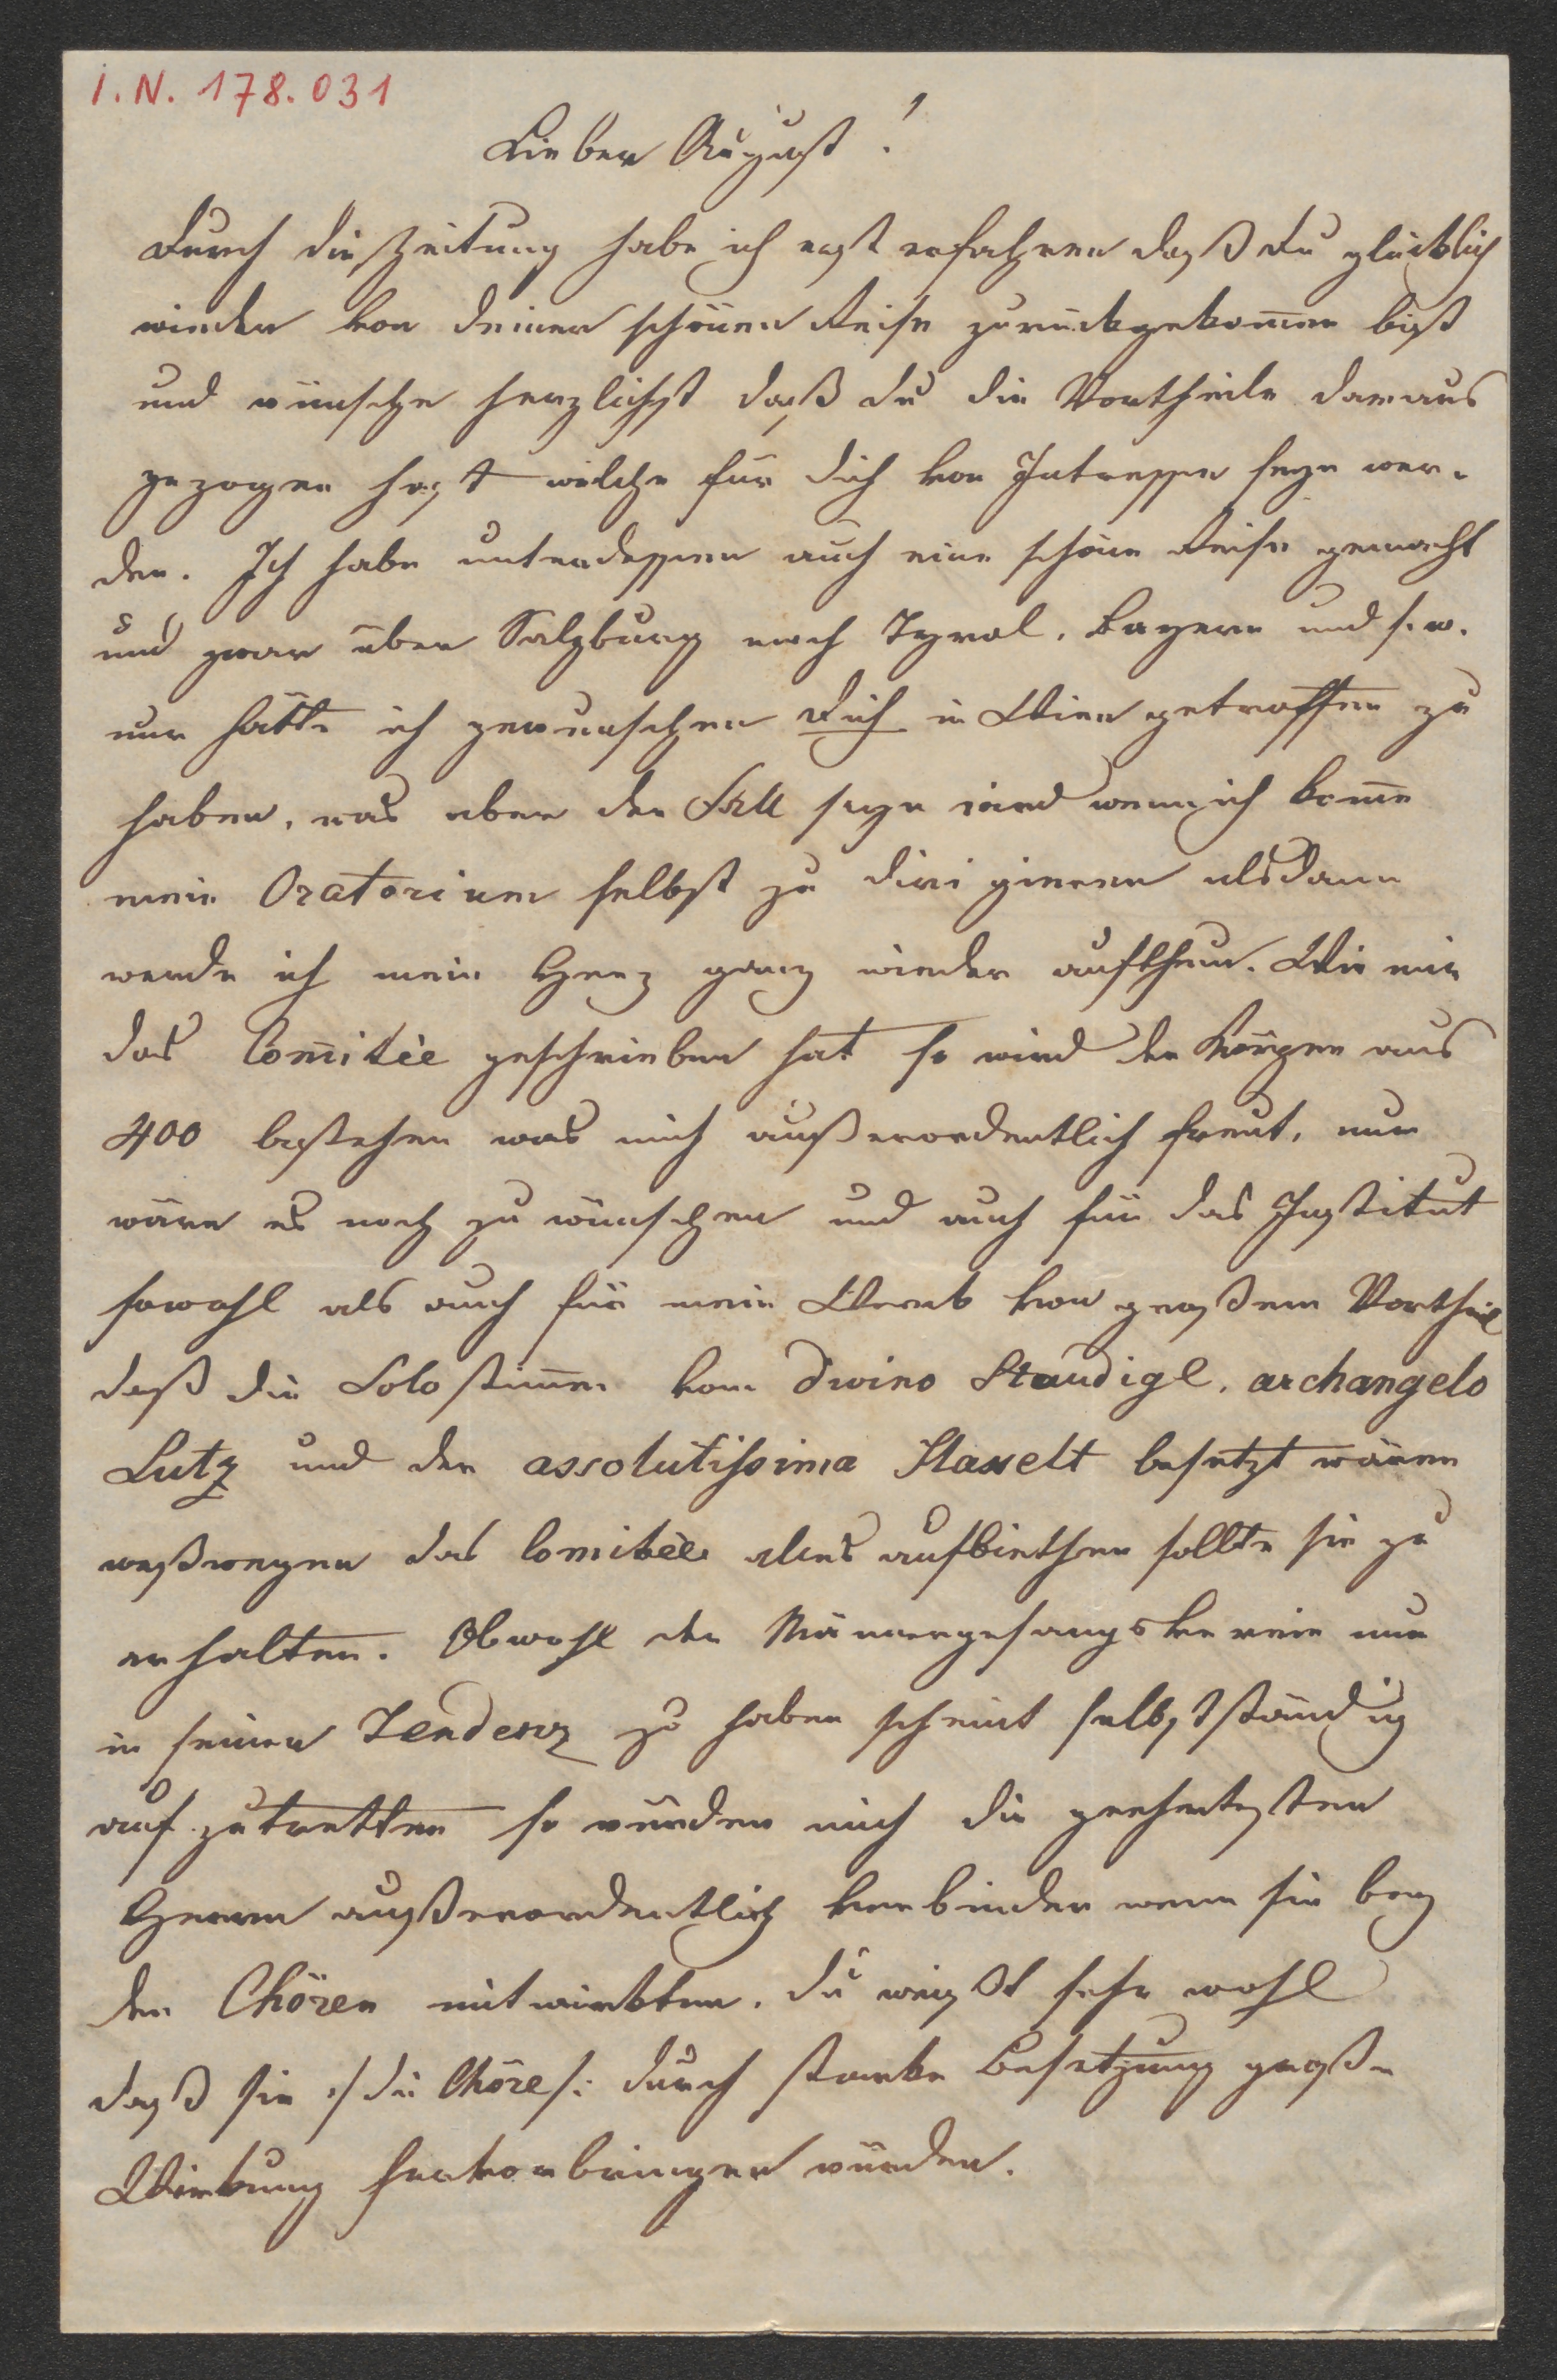 I. N. 178.031
Lieber August!
Durch die Zeitung habe ich erst erfahren daß du glücklich
wieder von deiner schönen Reise zurückgekom̅en bist
und wünsche herzlichst daß du die Vortheile daraus
gezogen hast welche für dich von Intressen seyn wer-
den. Ich habe unterdessen auch eine schöne Reise gemacht
und zwar über Salzburg nach Tyrol, Bayern und s. w.
nur hätte ich gewunschen Dich in Wien getroffen zu
haben, was aber der Fall seyn wird wenn ich kom̅e
mein Oratorium selbst zu dirigieren alsdann
werde ich mein Herz ganz wieder aufthun. Wie mir
das Com̅itèe geschrieben hat so wird der Körper aus
400 bestehen was mich außerordentlich freut, nur
wäre es noch zu wünschen und auch für das Institut
sowohl als auch für mein Werk von großem Vortheil
daß die Solostim̅en vom divino Staudigl, archangelo
Lutz und der assolutissima Hasselt besetzt wären
weßwegen das Comitèe alles aufbiethen sollte sie zu
erhalten. Obwohl der Männergesangsverein nur
in seiner Tendenz zu haben scheint selbstständig
aufzutretten so würden mich die geehrtesten
Herren außerordentlich verbinden wenn sie bey
den Chören mitwirkten. du weißt sehr wohl
daß sie :/ die Chöre /: durch starke Besetzung große
Wirkung hervorbringen würden.